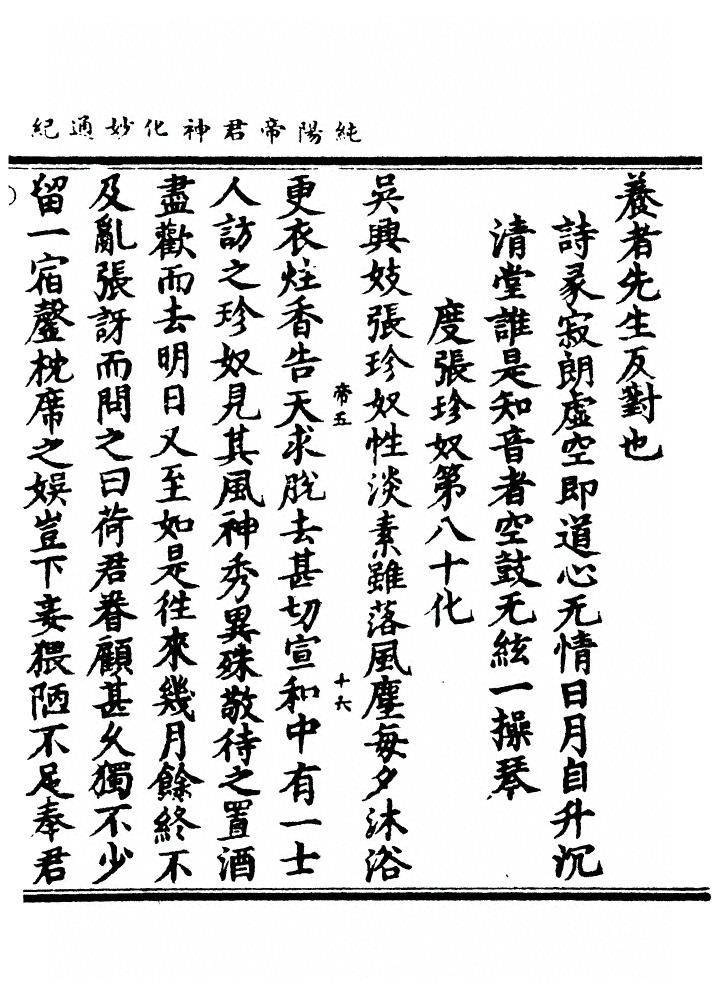 純陽帝君神化妙通紀
養者先生反對也
詩彖寂朗虛空即道心无情日月自升沉
清堂誰是知音者空鼓无絃一操琴
度張珍奴第八十化
吳興妓張珍奴性淡素雖落風塵每夕沐浴
更衣炷香告天求脫去甚切宣和中有一士
帝五
十六
人訪之珍奴見其風神秀異殊敬待之置酒
盡歡而去明日又至如是往來幾月餘終不
及亂張訝而問之曰荷君眷顧甚久獨不少
留一宿罄枕席之娛豈下妾猥陋不足奉君